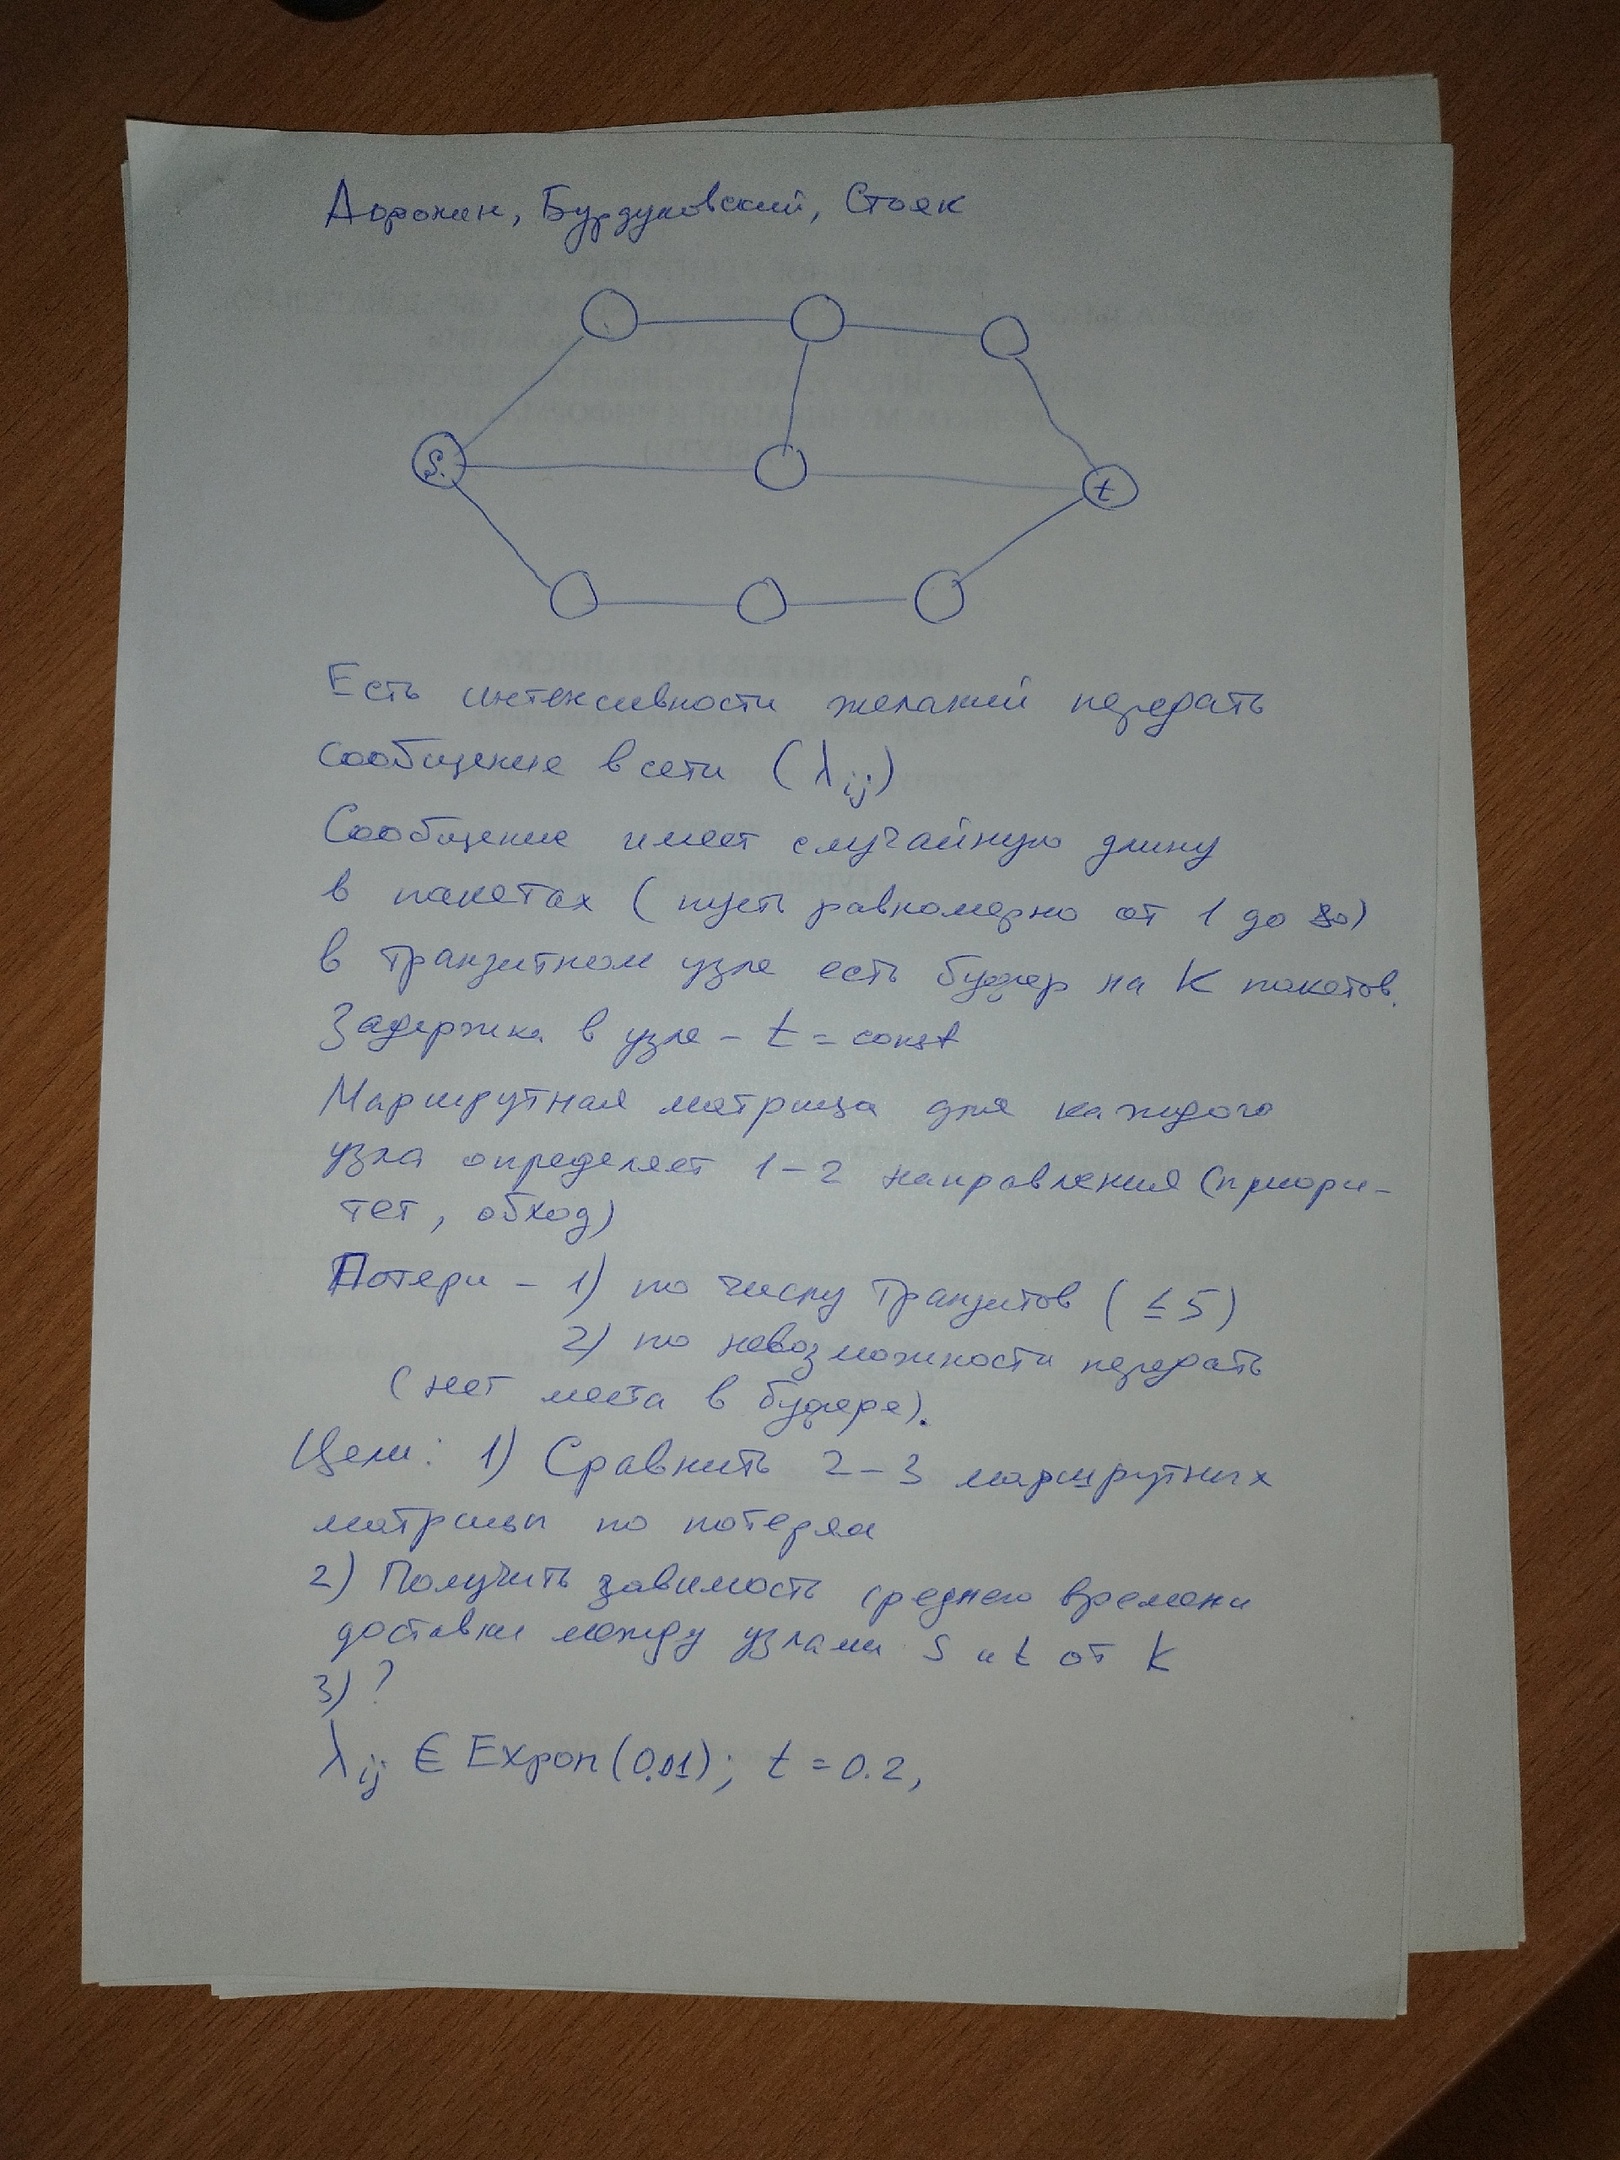 Дорохин, Бурдуковский, Стояк
S.
t
Есть интенсивности желаний передать
сообщение в сети (λij)
Сообщение имеет случайную длину
в пакетах (пусть равномерно от 1 до 80)
в транзитном узле есть буфер на K пакетов.
Задержка в узле - t = const
Маршрутная матрица для каждого
узла определяет 1-2 направления (приори-
тет, обход)
Потери - 1) по числу транзитов (≤5)
2) по невозможности передать
(нет места в буфере).
Цели: 1) Сравнить 2-3 маршрутных
матрицы по потерям
2) Получить завимость среднего времени
доставки между узлами S и t от K
3) ?
λij ∈ Expon(0.01); t = 0.2,